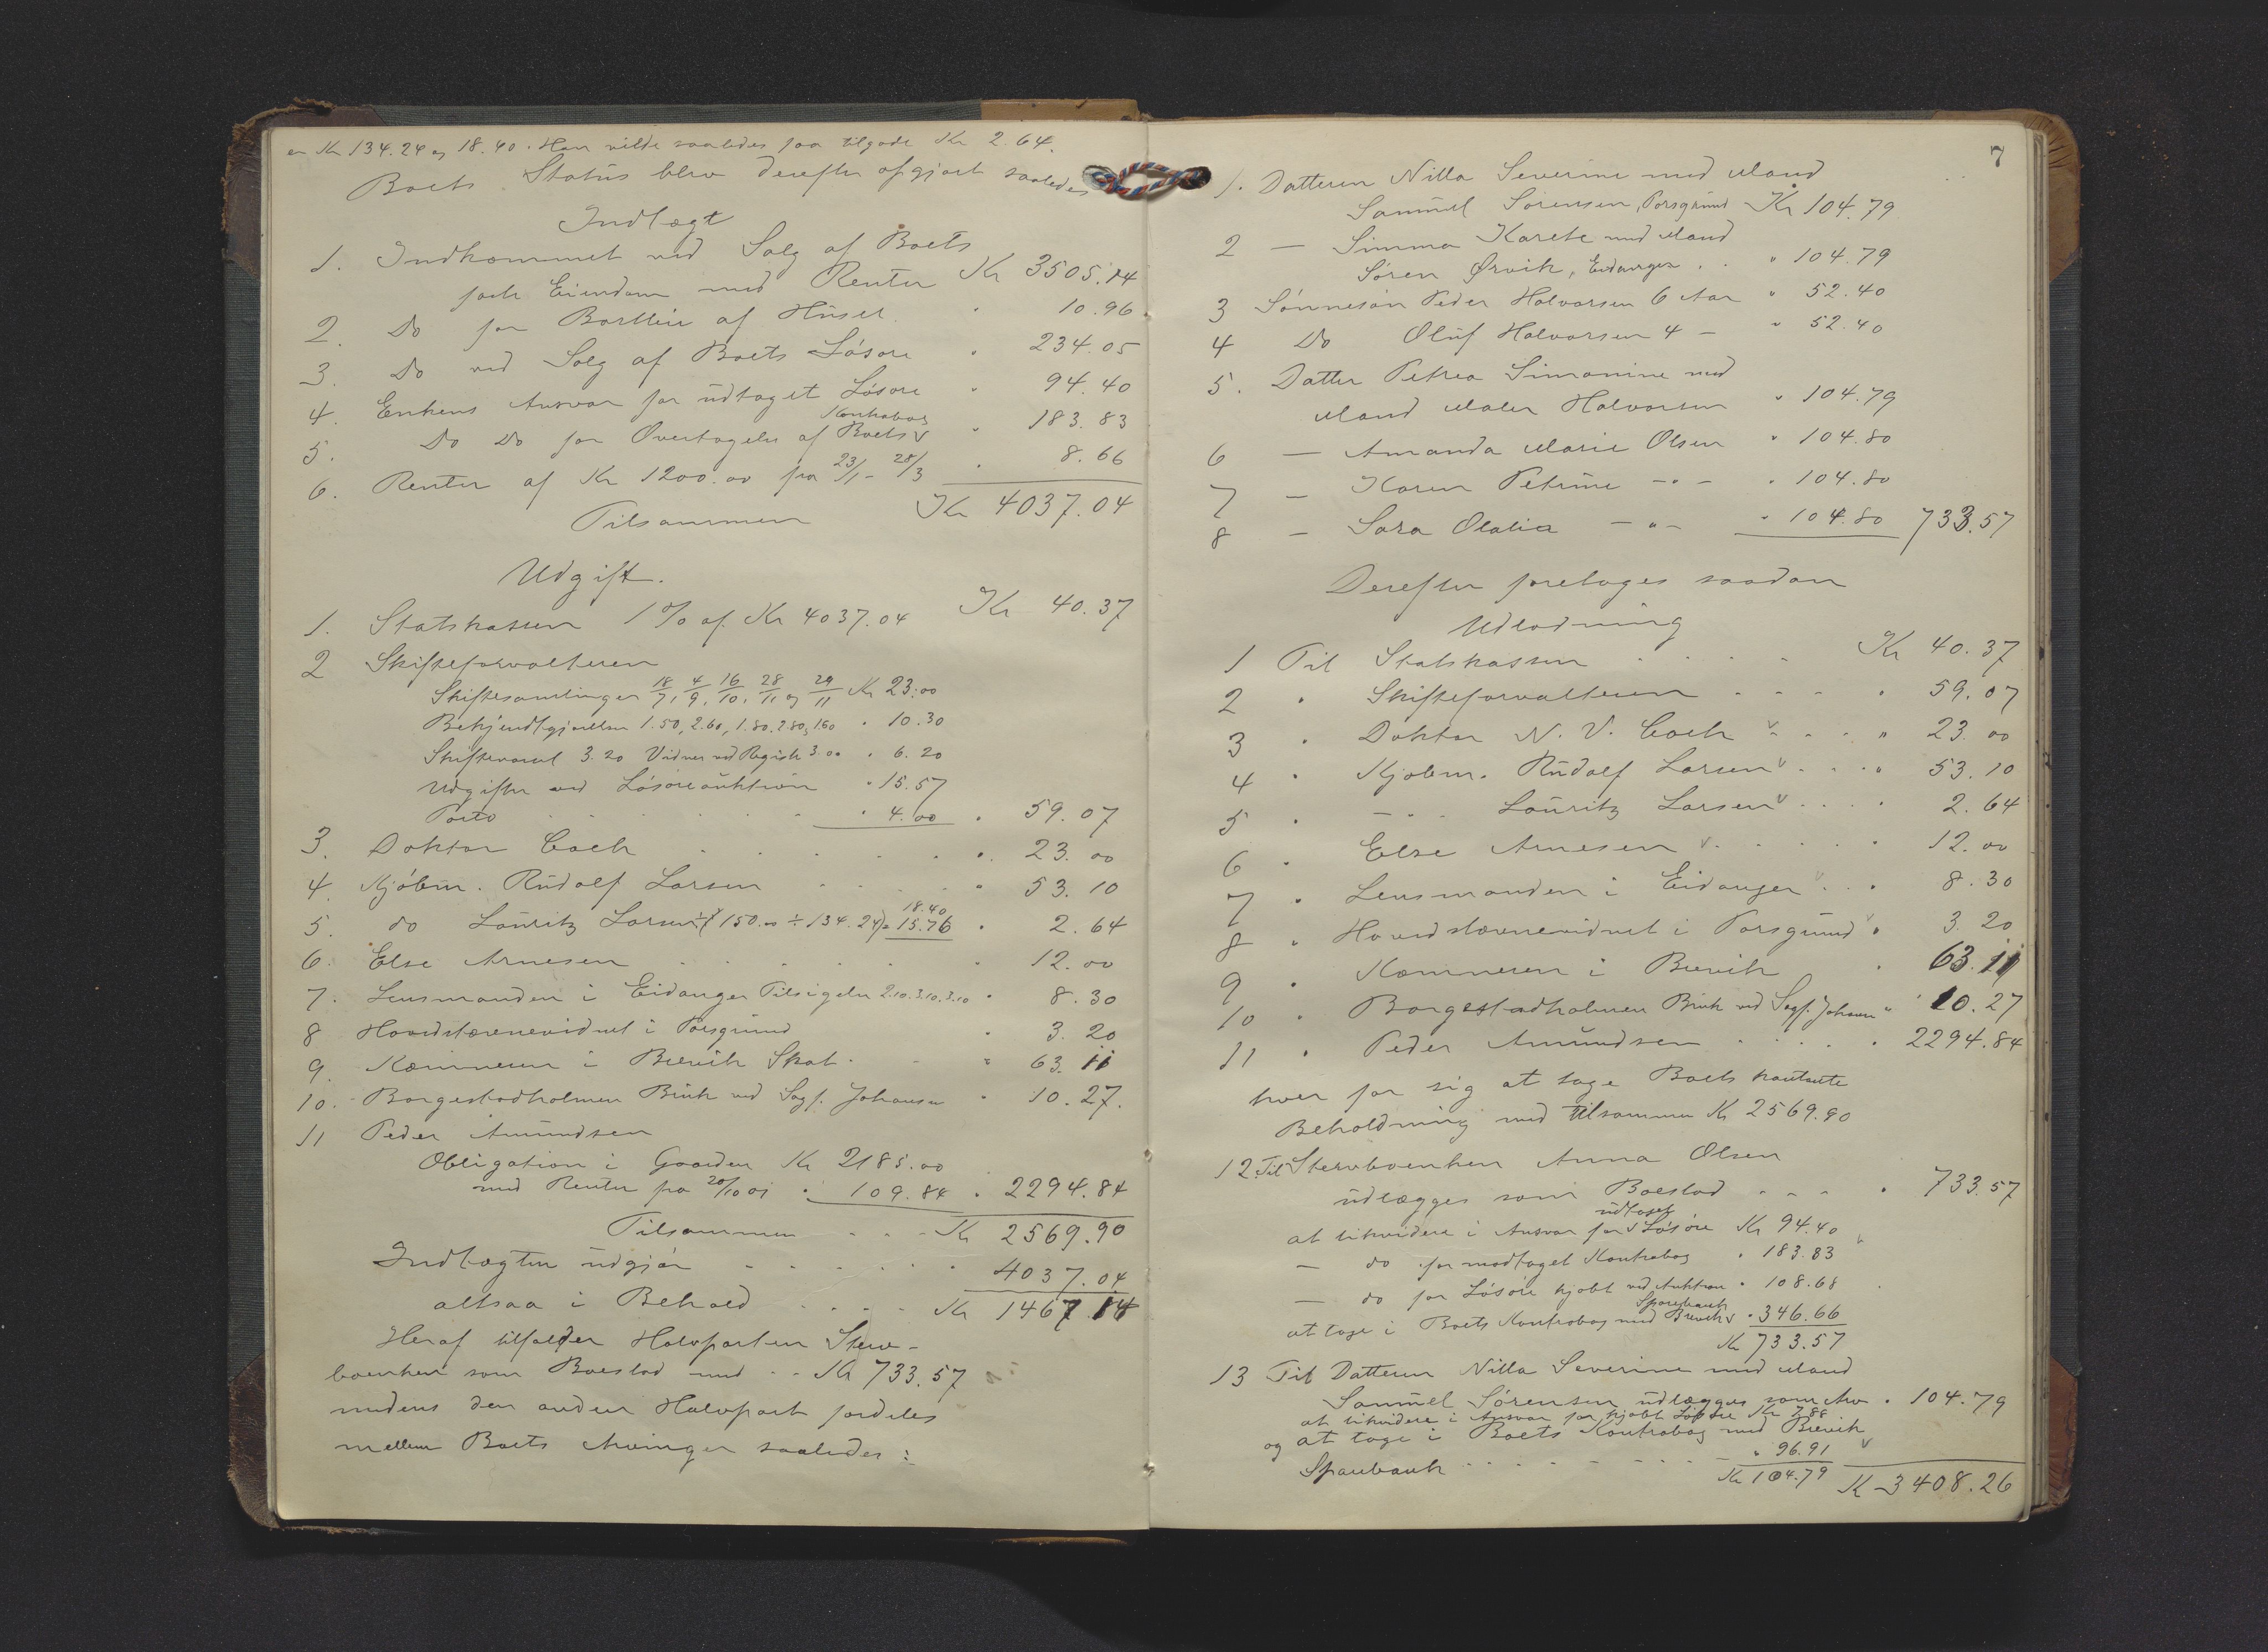 er Kr 134.24 og 18.40. Han vilde saaledes faa tilgode Kr 2.64.
Boets Status blev derefter opgjort saaledes
Indtægt
1. Indkommet ved Salg af Boets
faste Eiendom med Renter Kr 3505.14
2. Do for Bortleie af Huset " 10.96.
3. Do ved Salg af Boets Løsøre " 234.05
4. Enkens Ansvar for udtaget Løsøre " 94.40
Kontrabog
5. Do Do for Overtagelse af Boets v " 183.83
6. Renter af Kr 1200.00 fra 23/1 - 28/3 " 8.66
Tilsammen Kr 4037.04
Udgift.
1. Statskassen 1 % af Kr 4037.04 Kr 40.37
2 Skifteforvalteren
Skiftesamlinger 18/7, 4/9, 16/10, 28/11 og 29/11 Kr 23.00
Bekjendtgjørelser 1.50, 2.60, 1.80, 2.80, 1.60 " 10.30
3.20 Vidner ved Registr 3.00 " 6.20
Udgifter ved Løsøreauktion " 15.57
Porto " 4.00 " 59.07
3. Doktor Coch " 23.00
4. Kjøbm. Rudolf Larsen " 53.10
18.40
5. do Lauritz Larsen ÷ (150.00 ÷ 134.24) = 15.76 " 2.64
6. Else Arnesen " 12.00
7. Lensmanden i Eidanger Tilsigelse 2.10. 3.10. 3.10 " 8.30
8 Hovedstævnevidnet i Porsgrund " 3.20
9. Kæmneren i Brevik Skat " 63.11
10. Borgestadholmen Bruk ved Sagf. Johansen " 10.27.
11 Peder Amundsen
Obligation i Gaarden Kr 2185.00
med Renter fra 20/10 01 " 109.84 " 2294.84
Tilsammen Kr 2569.90
Indtægten udgjør " 4037.04
altsaa i Behold Kr 1467.14
Heraf tilfalder Halvparten Sterv-
boenken som Boeslod med Kr 733.57
medens den anden Halvpart fordeles
mellem Boets Arvinger saaledes:
7
1. Datteren Nilla Severine med Mand
Samuel Sørensen, Porsgrund Kr 104.79
2 — Simma Karete med Mand
Søren Ørvik, Eidanger " 104.79
3 Sønnesøn Peder Halvorsen 6 Aar " 52.40
4 Do Oluf Halvorsen 4 — " 52.40
5. Datter Petrea Simonine med
Mand Maler Halvorsen " 104.79
6 — Amanda Marie Olsen " 104.80
7 — Karen Petrine — " — " 104.80
8 — Sara Olalia — " — " 104.80 733.57
Derefter foretoges saadan
Udlodning
1 Til Statskassen Kr 40.37
2 " Skifteforvalteren " 59.07
3 " Doktor N. V. Coch v " 23.00
4 " Kjøbm. Rudolf Larsen v " 53.10
5 " — " — Lauritz Larsen v " 2.64
6 " Else Arnesen v " 12.00
7 " Lensmanden i Eidanger v " 8.30
8 " Hovedstævnevidnet i Porsgrund v " 3.20
9 " Kæmneren i Brevik " 63.11
10 " Borgestadholmen Bruk ved Sagf. Johansen " 10.27
11 " Peder Amundsen " 2294.84
hver for sig at tage Boets kontante
Beholdning med tilsammen Kr 2569.90
12. Til Stervboenken Anna Olsen
udlægges som Boeslod " 733.57
udtaget
at likvidere i Ansvar for v Løsøre Kr 94.40
— do for modtaget Kontrabog " 183.83
— do for Løsøre kjøbt ved Auktion " 108.68
Sparebank
at tage i Boets Kontrabog med Brevik v " 346.66
Kr 733.57
13 Til Datteren Nilla Severine med Mand
Samuel Sørensen udlægges som Arv " 104.79
at likvidere i Ansvar for kjøbt Løsøre Kr 7.88
og at tage i Boets Kontrabog med Brevik
Sparebank " 96.91 v
Kr 104.79 Kr 3408.26